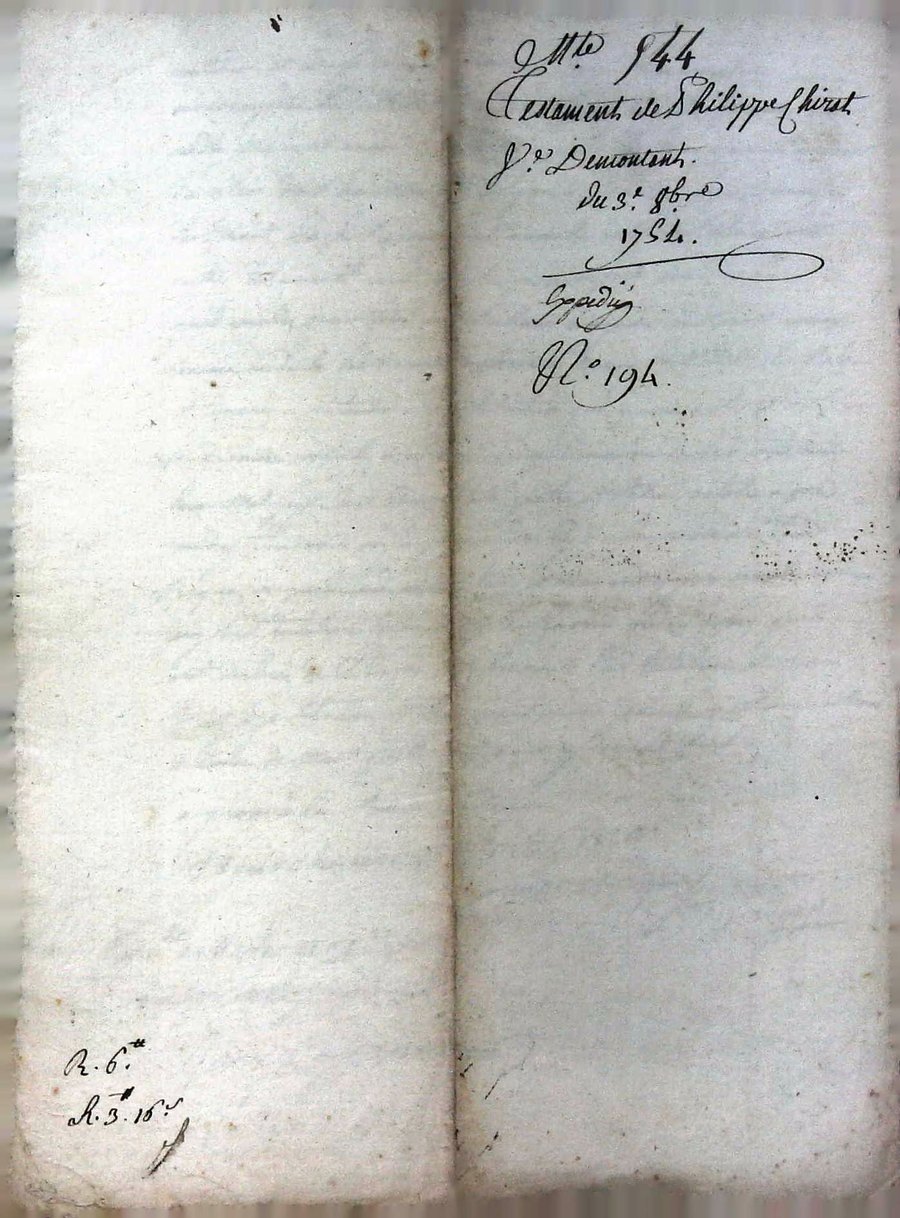 544
Testament de Philippe Chirat
Ve Demontant.
du 3e. 8bre
1754.
Expedié
No. 194.
R. 6.#
R. 3.# 16.s